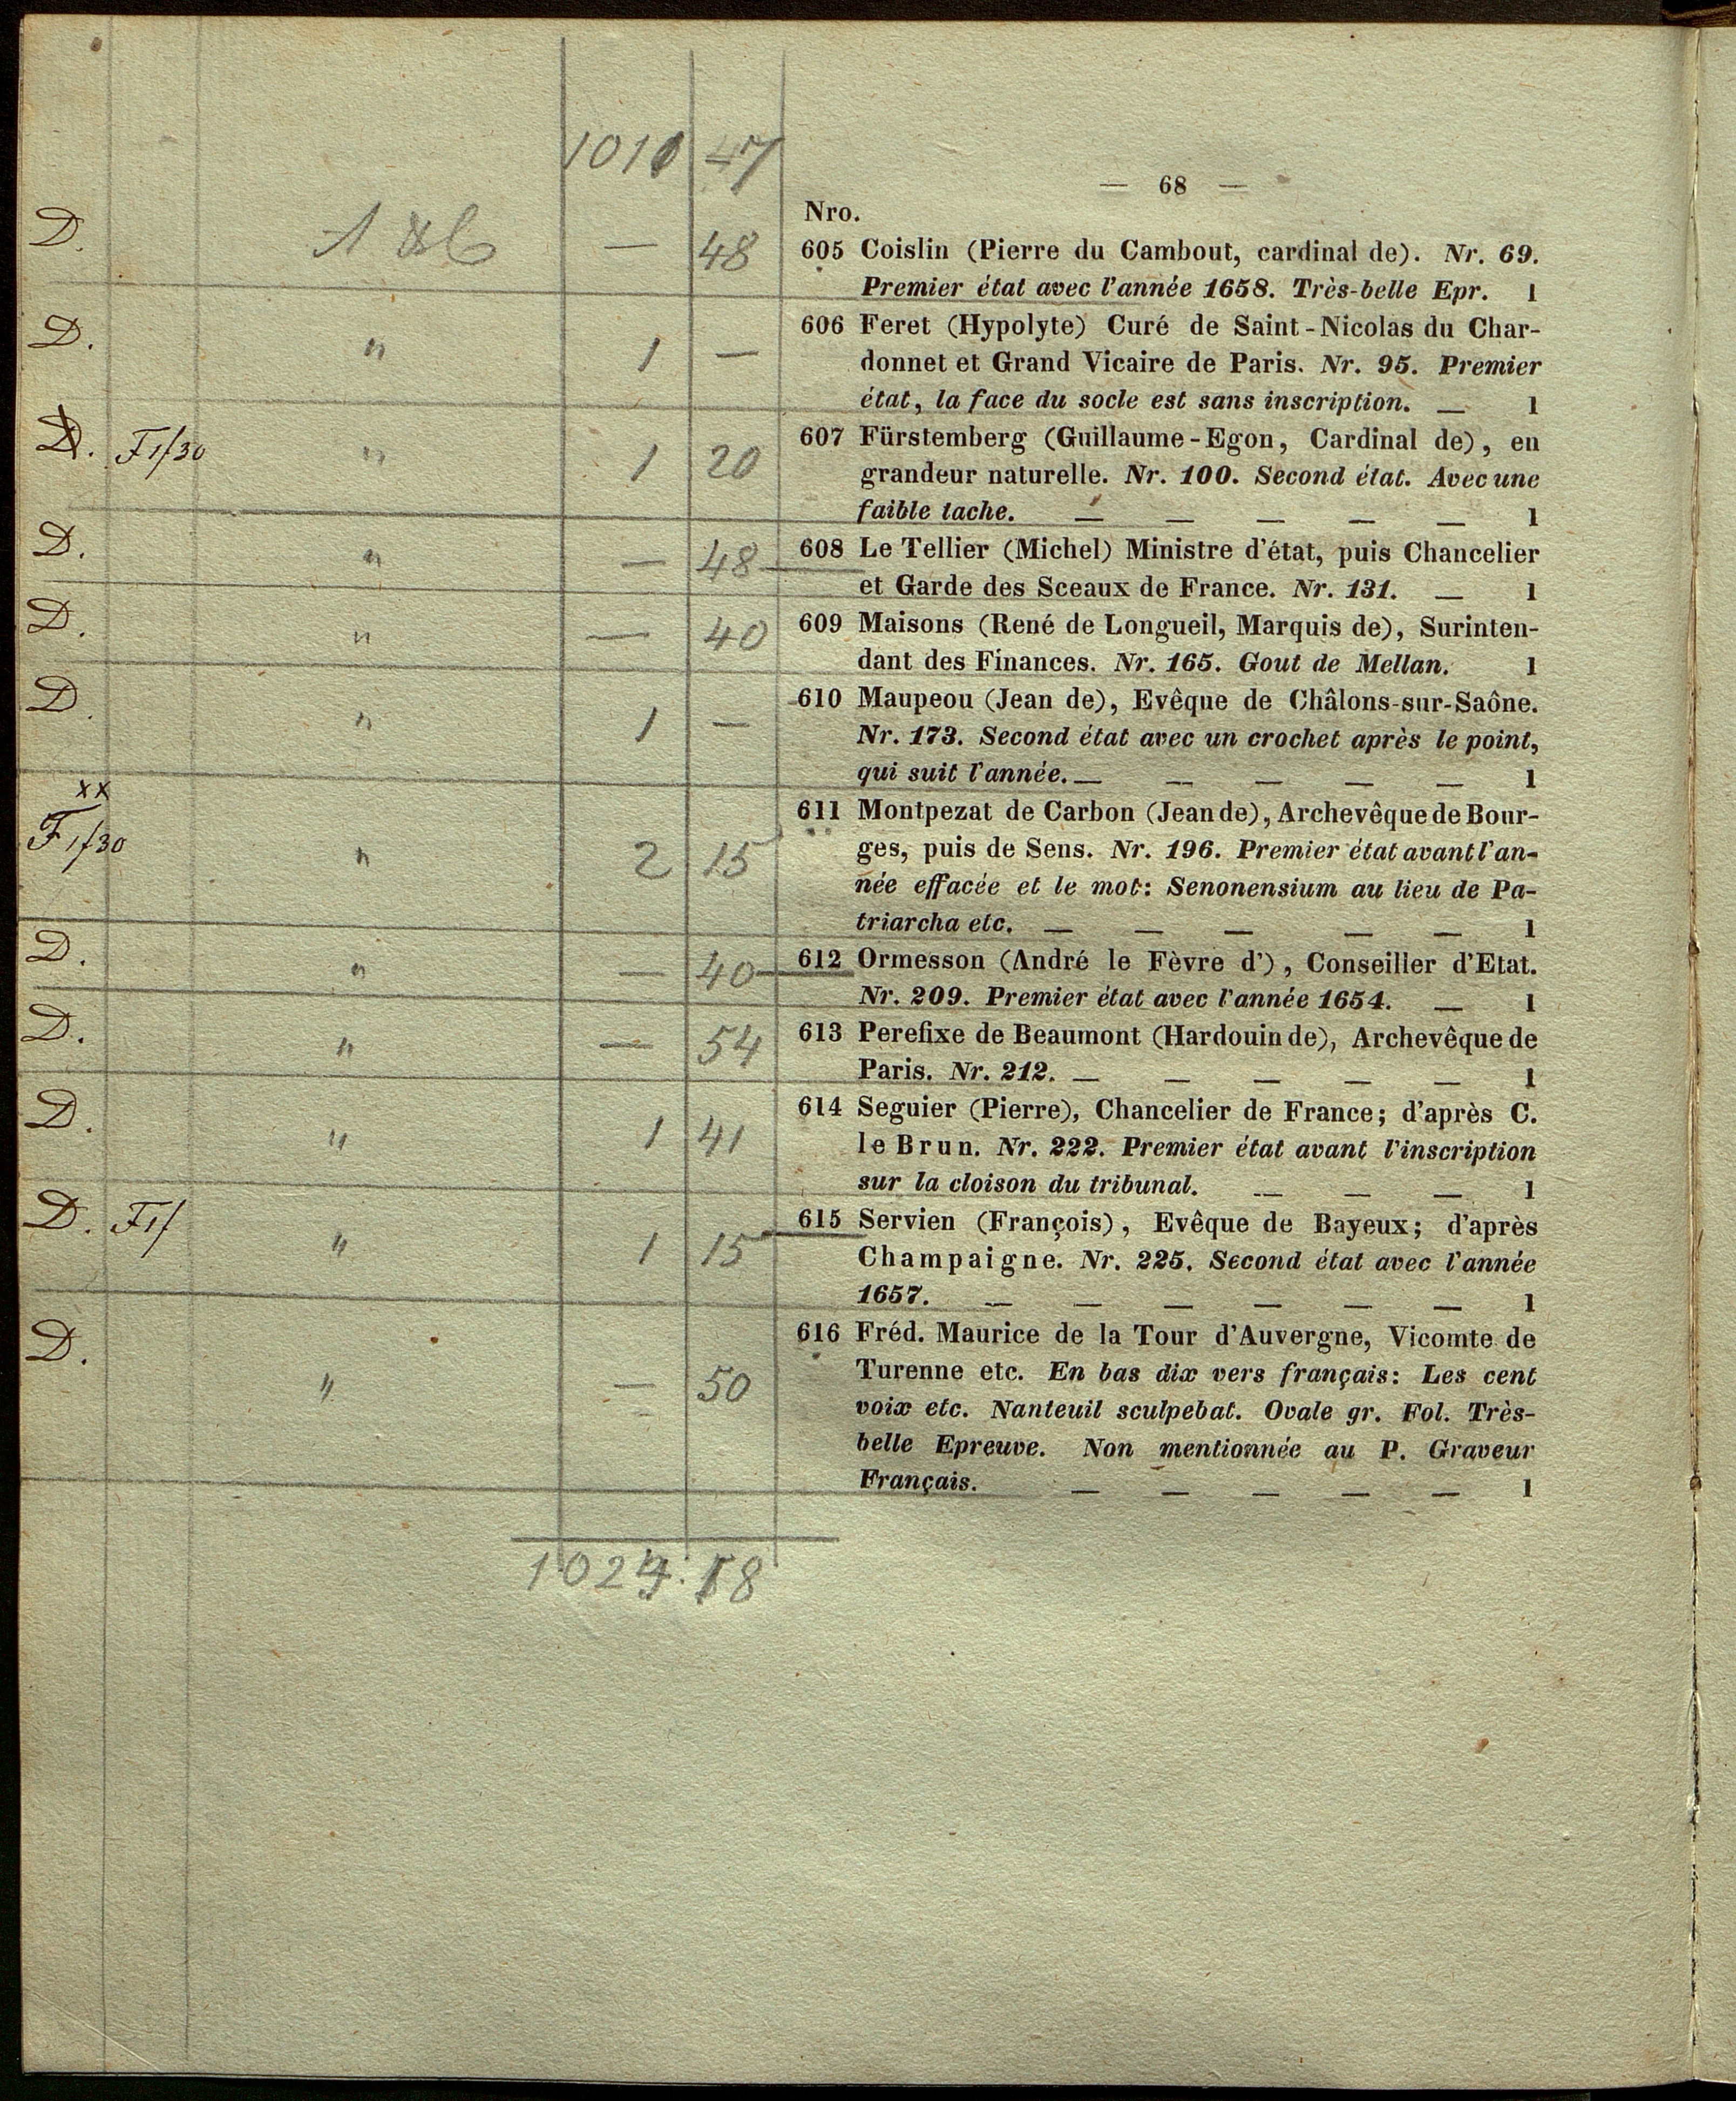 1010 47
— 68 —
Nro.
D. — 48 605 Coislin (Pierre du Cambout, cardinal de). Nr. 69.
Premier état avec l'année 1658. Très-belle Epr. 1
D. " 1 — 606 Feret (Hypolyte) Curé de Saint-Nicolas du Char-
donnet et Grand Vicaire de Paris. Nr. 95. Premier
état, la face du socle est sans inscription. — 1
D. F1f30 " 1 20 607 Fürstemberg (Guillaume-Egon, Cardinal de), en
grandeur naturelle. Nr. 100. Second état. Avec une
faible tache. — — — — — 1
D. " — 48 608 Le Tellier (Michel) Ministre d'état, puis Chancelier
et Garde des Sceaux de France. Nr. 131. — 1
D. " — 40 609 Maisons (René de Longueil, Marquis de), Surinten-
dant des Finances. Nr. 165. Gout de Mellan. 1
D. " 1 — 610 Maupeou (Jean de), Evêque de Châlons-sur-Saône.
Nr. 173. Second état avec un crochet après le point,
qui suit l'année. — — — — — 1
xx
F1f30 " 2 15 611 Montpezat de Carbon (Jean de), Archevêque de Bour-
ges, puis de Sens. Nr. 196. Premier état avant l'an-
née effacée et le mot: Senonensium au lieu de Pa-
triarcha etc. — — — — — 1
D. " — 40 612 Ormesson (André le Fèvre d'), Conseiller d'Etat.
Nr. 209. Premier état avec l'année 1654. — 1
D. " — 54 613 Perefixe de Beaumont (Hardouin de), Archevêque de
Paris. Nr. 212. — — — — — 1
D. " 1 41 614 Seguier (Pierre), Chancelier de France; d'après C.
le Brun. Nr. 222. Premier état avant l'inscription
sur la cloison du tribunal. — — — 1
D. F1f " 1 15 615 Servien (François), Evêque de Bayeux; d'après
Champaigne. Nr. 225. Second état avec l'année
1657. — — — — — — 1
D. " — 50 616 Fréd. Maurice de la Tour d'Auvergne, Vicomte de
Turenne etc. En bas dix vers français: Les cent
voix etc. Nanteuil sculpebat. Ovale gr. Fol. Très-
belle Epreuve. Non mentionnée au P. Graveur
Français. — — — — — 1